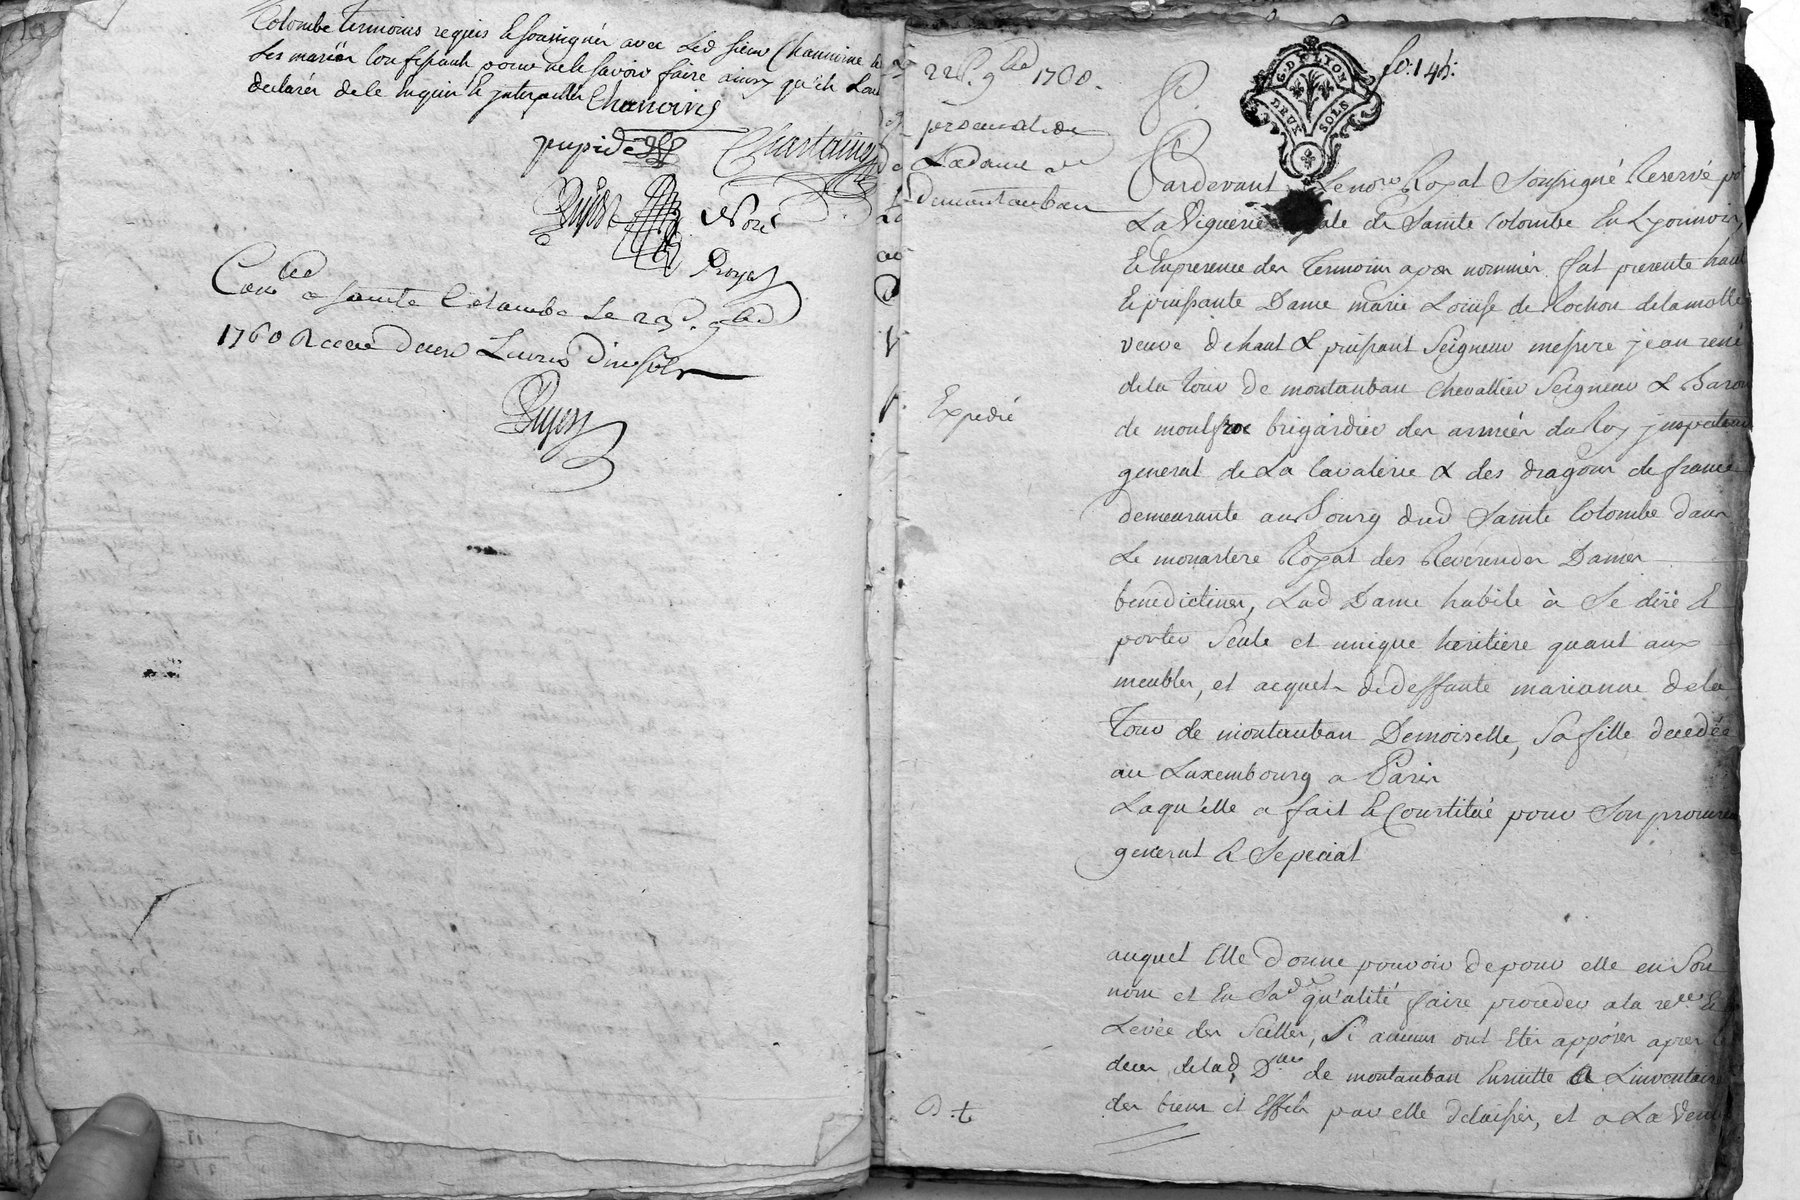 Colombe temoins requis & soussignés avec Led sieur Chanoine &
Les mariés confessant pour ne le savoir faire ainsy qu'ils L'ont
declarés de ce enquis & interpellés Chanoine
pupide Chastaing
Dujon Noré
Proyet
Con.lé a sainte Colombe Le 23e 9bre
1760 Receu deux Livres dix sols
Dujon
22e 9bre 1760.
procuration
Madame
de montauban
Expedié
fo. 145:
G. DE LYON
DEUX SOLS
Pardevant Le nore Royal soussigné Reservé po
La Viguerie de Sainte Colombe En Lyonnois,
& En presence des Temoins apres nommés. fut presente haute
& puissante Dame marie Louise de Rochon de la motte
veuve de haut & puissant Seigneur messire jean rené
de la Tour de montauban Chevallier Seigneur & Baron
de montfroc brigardier des armées du Roy jnspecteur
general de La Cavalerie & des dragons de france
demeurante au Bourg dud Sainte Colombe dans
Le monastere Royal des Reverendes Dames
benedictines, Lad Dame habile à Se dire &
porter Seule et unique heritiere quant aux
meubles, et acquets de deffunte marianne de la
Tour de montauban Demoiselle, Sa fille decedée
au Luxembourg a Paris
Laqu'elle a fait & Constitué pour Son procureur
general & Sepecial
auquel Elle donne pouvoir de pour elle en Son
nom et En Sad. qu'alité faire proceder a la recce &
Levée des Scellés, Si aucuns ont Etés apposés apres le
deces de lad. Dlle de montauban Ensuitte a L'inventaire
des biens et Effets par elle delaissés, et a La Vente
D. t